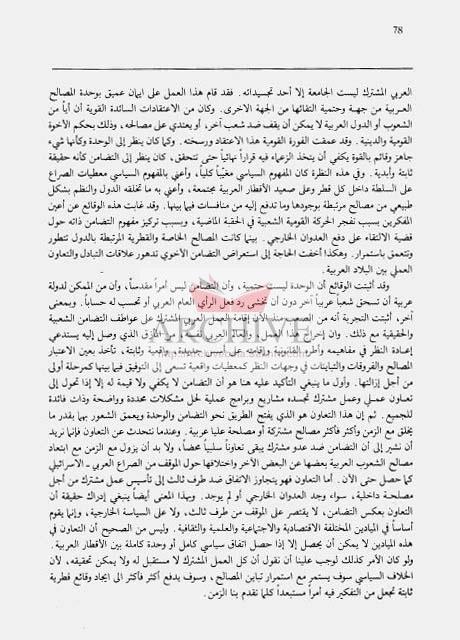 78
العربي المشترك ليست الجامعة إلا أحد تجسيداته . فقد قام هذا العمل على ايمان عميق بوحدة المصالح
العربية من جهة وحتمية التقائها من الجهة الاخرى . وكان من الاعتقادات السائدة القوية أن أياً من
الشعوب أو الدول العربية لا يمكن أن يقف ضد شعب آخر، أو يعتدي على مصالحه، وذلك بحكم الأخوة
القومية والدينية . وقد عمقت الفورة القومية هذا الاعتقاد ورسخته . وكما كان ينظر إلى الوحدة وكأنها شيء
جاهز وقائم بالقوة يكفي أن يتخذ الزعماء فيه قراراً نهائياً حتى تتحقق، كان ينظر إلى التضامن كأنه حقيقة
ثابتة وأبدية . وفي هذه النظرة كان المفهوم السياسي مغيّباً كلياً، وأعني بالمفهوم السياسي معطيات الصراع
على السلطة داخل كل قطر وعلى صعيد الأقطار العربية مجتمعة، وأعني به ما تخلقه الدول والنظم بشكل
طبيعي من مصالح مرتبطة بوجودها وما تدفع إليه من منافسات فيما بينها . وقد غابت هذه الوقائع عن أعين
المفكرين بسبب تفجر الحركة القومية الشعبية في الحقبة الماضية، وبسبب تركيز مفهوم التضامن ذاته حول
قضية الالتقاء على دفع العدوان الخارجي . بينما كانت المصالح الخاصة والقطرية المرتبطة بالدول تتطور
وتتعمق باستمرار . وهكذا أخفت الحاجة إلى استعراض التضامن الأخوي تدهور علاقات التبادل والتعاون
العملي بين البلاد العربية .
وقد أثبتت الوقائع أن الوحدة ليست حتمية، وأن التضامن ليس أمراً مقدساً، وأن من الممكن لدولة
عربية أن تسحق شعباً عربياً آخر دون أن تخشى رد فعل الرأي العام العربي أو تحسب له حساباً . وبمعنى
آخر، أثبتت التجربة أنه من الصعب منذ الآن إقامة العمل العربي المشترك على عواطف التضامن الشعبية
والحقيقية مع ذلك . وإن إخراج هذا العمل والعالم العربي نفسه من المأزق الذي وصل إليه يستدعي
إعادة النظر في مفاهيمه وأطره القانونية وإقامته على أسس جديدة، واقعية وثابتة، تأخذ بعين الاعتبار
المصالح والفروقات والتباينات في وجهات النظر كمعطيات واقعية تسعى إلى التوفيق فيما بينها كمرحلة أولى
من أجل إزالتها . وأول ما ينبغي التأكيد عليه هنا هو أن التضامن لا يكفي ولا قيمة له إلا إذا تحول إلى
تعاون عملي وعمل مشترك تجسده مشاريع وبرامج عملية لحل مشكلات محددة وواضحة وذات فائدة
للجميع . ثم إن هذا التعاون هو الذي يفتح الطريق نحو التضامن والوحدة ويعمق الشعور بهما بقدر ما
يخلق مع الزمن وأكثر فأكثر مصالح مشتركة أو مصلحة عليا عربية . وعندما نتحدث عن التعاون فإننا نريد
أن نشير إلى أن التضامن ضد عدو مشترك يبقى تعاوناً سلبياً محضاً، ولا بد أن يزول مع الزمن مع ابتعاد
مصالح الشعوب العربية بعضها عن البعض الآخر واختلافها حول الموقف من الصراع العربي ـ الاسرائيلي
كما حصل حتى الآن . أما التعاون فهو يتجاوز الاتفاق ضد طرف ثالث إلى تأسيس عمل مشترك من أجل
مصلحة داخلية، سواء وجد العدوان الخارجي أو لم يوجد . وبهذا المعنى أيضاً ينبغي إدراك حقيقة أن
التعاون بعكس التضامن، لا يقتصر على الموقف من طرف ثالث، ولا على السياسة الخارجية، وإنما يقوم
أساساً في الميادين المختلفة الاقتصادية والاجتماعية والعلمية والثقافية . وليس من الصحيح أن التعاون في
هذه الميادين لا يمكن أن يحصل إلا إذا حصل اتفاق سياسي كامل أو وحدة كاملة بين الأقطار العربية .
ولو كان الأمر كذلك لوجب علينا أن نقول أن كل العمل المشترك لا مستقبل له ولا يمكن تحقيقه، لأن
الخلاف السياسي سوف يستمر مع استمرار تباين المصالح، وسوف يدفع أكثر فأكثر الى ايجاد وقائع قطرية
ثابتة تجعل من التفكير فيه أمراً مستبعداً كلما تقدم بنا الزمن .
ARCHIVE